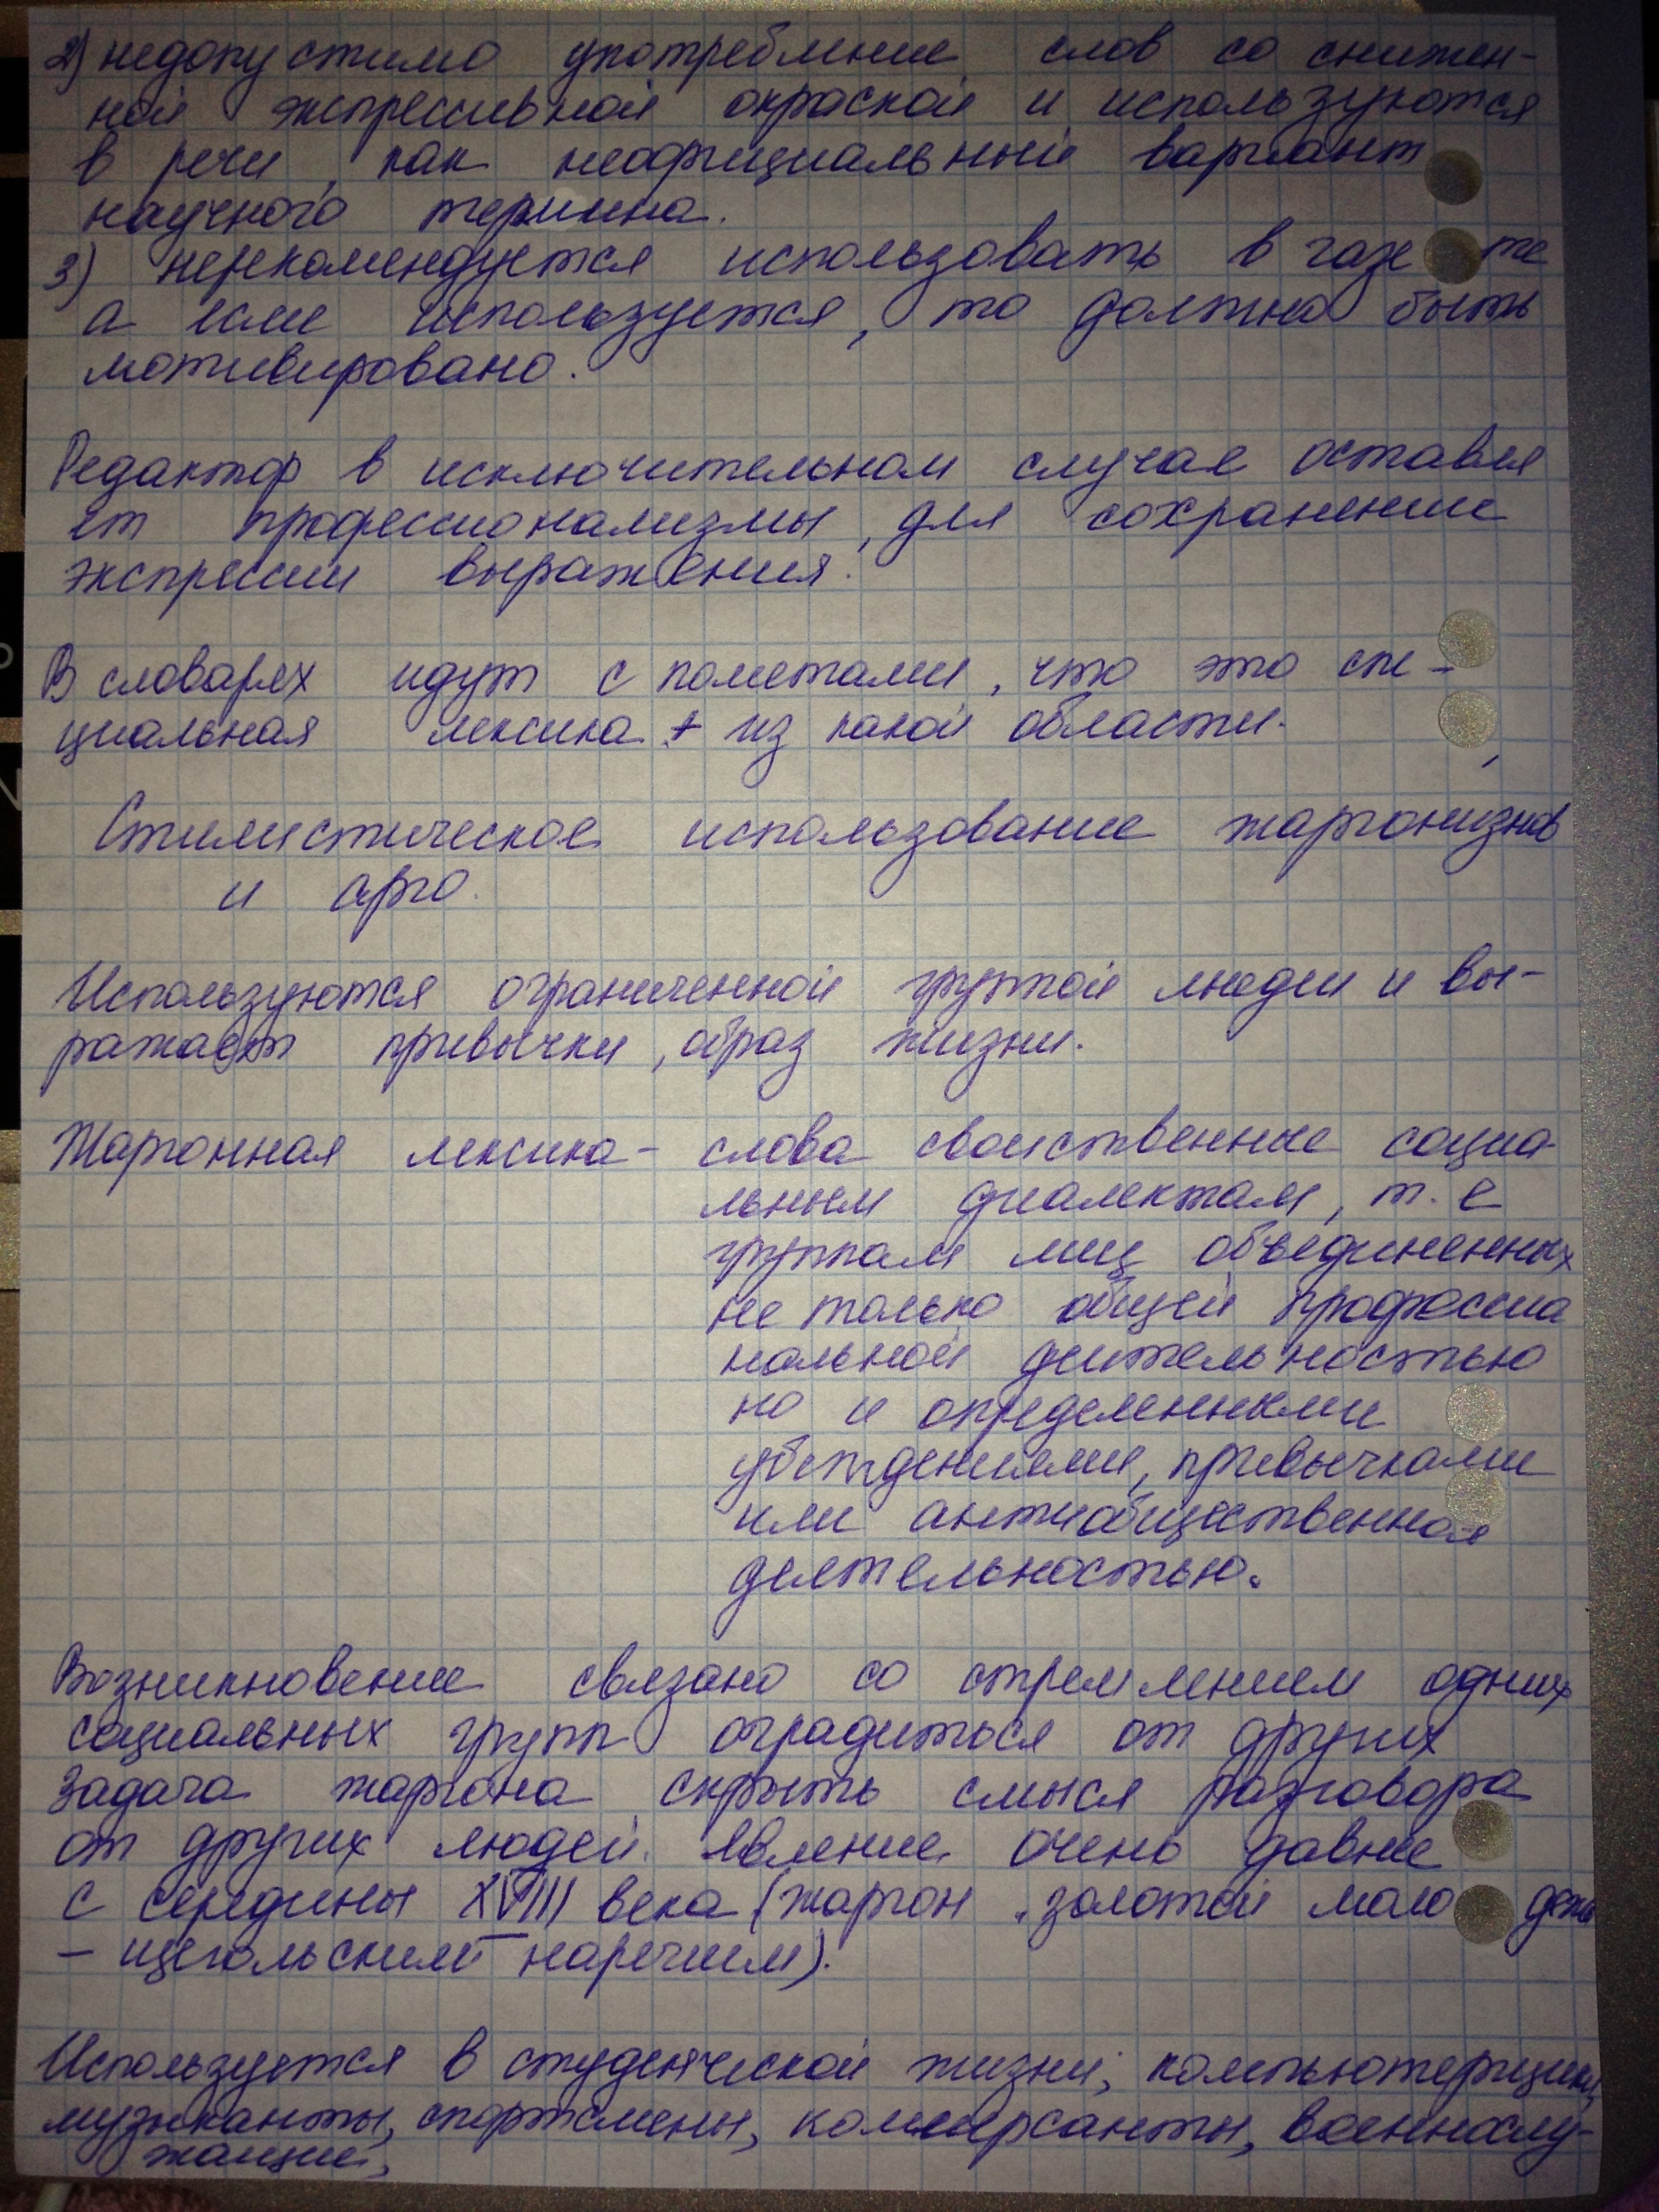 2) недопустимо употребление слов со снижен-
ной экспрессивной окраской и используются
в речи, как неофициальный вариант
научного термина.
3) нерекомендуется использовать в газете
а если используется, то должно быть
мотивировано.
Редактор в исключительном случае оставля
ет профессионализмы, для сохранение
экспрессии выражения.
В словарях идут с пометами, что это спе-
циальная лексика + из какой области.
Стилистическое использование жаргонизмов
и арго.
Используются ограниченной группой людей и вы-
ражает привычки, образ жизни.
Жаргонная лексика - слова свойственные социа-
льным диалектам, т.е
группам лиц объединенных
не только общей професcиа
нальной деятельностью
но и определенными
убеждениями, привычками
или антиобщественной
деятельностью.
Возникновение связано со стремлением одних
социальных групп оградиться от других
Задача жаргона скрыть смысл разговора
от других людей. Явление очень давнее
с середины XVIII века (жаргон "золотой молодежь
- щегольским наречием).
Используется в студенческой жизни, компьютерщики,
музыканты, спортсмены, коммерсанты, военнослу-
жащие,